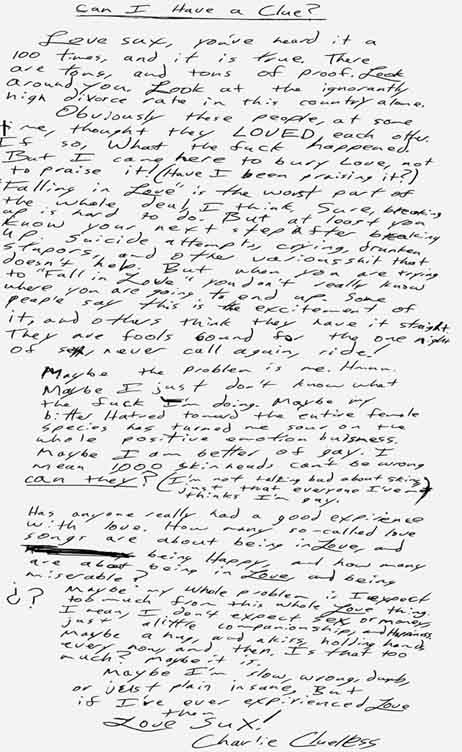 Can I Have a Clue?
Love sux, you've heard it a
100 times, and it is true. There
are tons, and tons of proof. Look
around you. Look at the ignorantly
high divorce rate in this country alone.
Obviously these people, at some
time, thought they LOVED, each other.
If so, What the fuck happened.
But I came here to bury Love, not
to praise it! (Have I been praising it?)
"Falling in Love" is the worst part of
the whole deal, I think. Sure, breaking
up is hard to do. But at least you
know your next step after breaking
up. Suicide attempts, crying, drunken
stupors, and other various shit that
doesn't help. But when you are trying
to "Fall in Love" you don't really know
where you are going to end up. Some
people say this is the excitement of
it, and others think they have it straight
They are fools bound for the one night
of sex, never call again, ride!
Maybe the problem is me. Hmm.
Maybe I just don't know what
the fuck I'm doing. Maybe my
bitter Hatred toward the entire female
species has turned me sour on the
whole positive emotion buisness.
Maybe I am better of gay. I
mean 1000 skinheads can't be wrong
can they? (I'm not talking bad about skins,
just that everyone I've met
thinks I'm gay.
Has anyone really had a good expirience
with love. How many so-called love
songs are about being in Love, and
being Happy, and how many
are about being in Love, and being
miserable?
¿? Maybe my whole problem is I expect
too much from this whole Love thing.
I mean, I don't expect sex, or money,
just a little companionship, and Happiness.
Maybe a hug, and a kiss, holding hands
every now, and then. Is that too
much? Maybe it is.
Maybe I'm slow, wrong, dumb,
or just plain insane, But
if I've ever expirienced Love
then
Love Sux!
Charlie Clueless